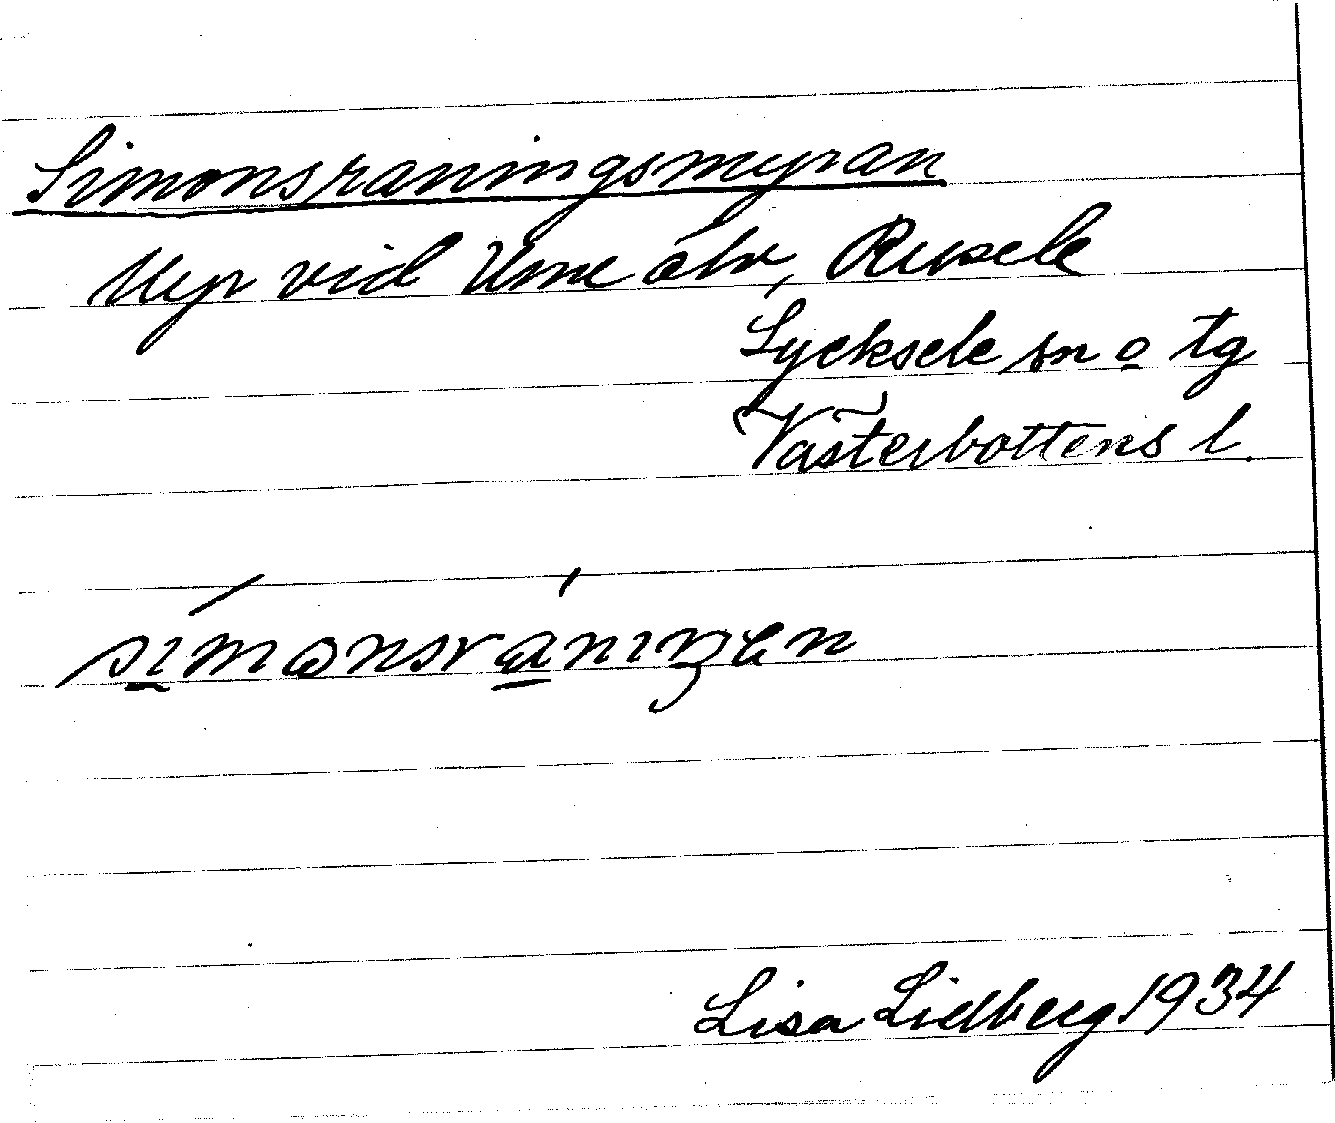 Simonsraningsmyran
Myr vid Ume älv, Rusele
Lycksele sn o tg
Västerbottens l.
simonsràniŋɜn
Lisa Lidberg 1934